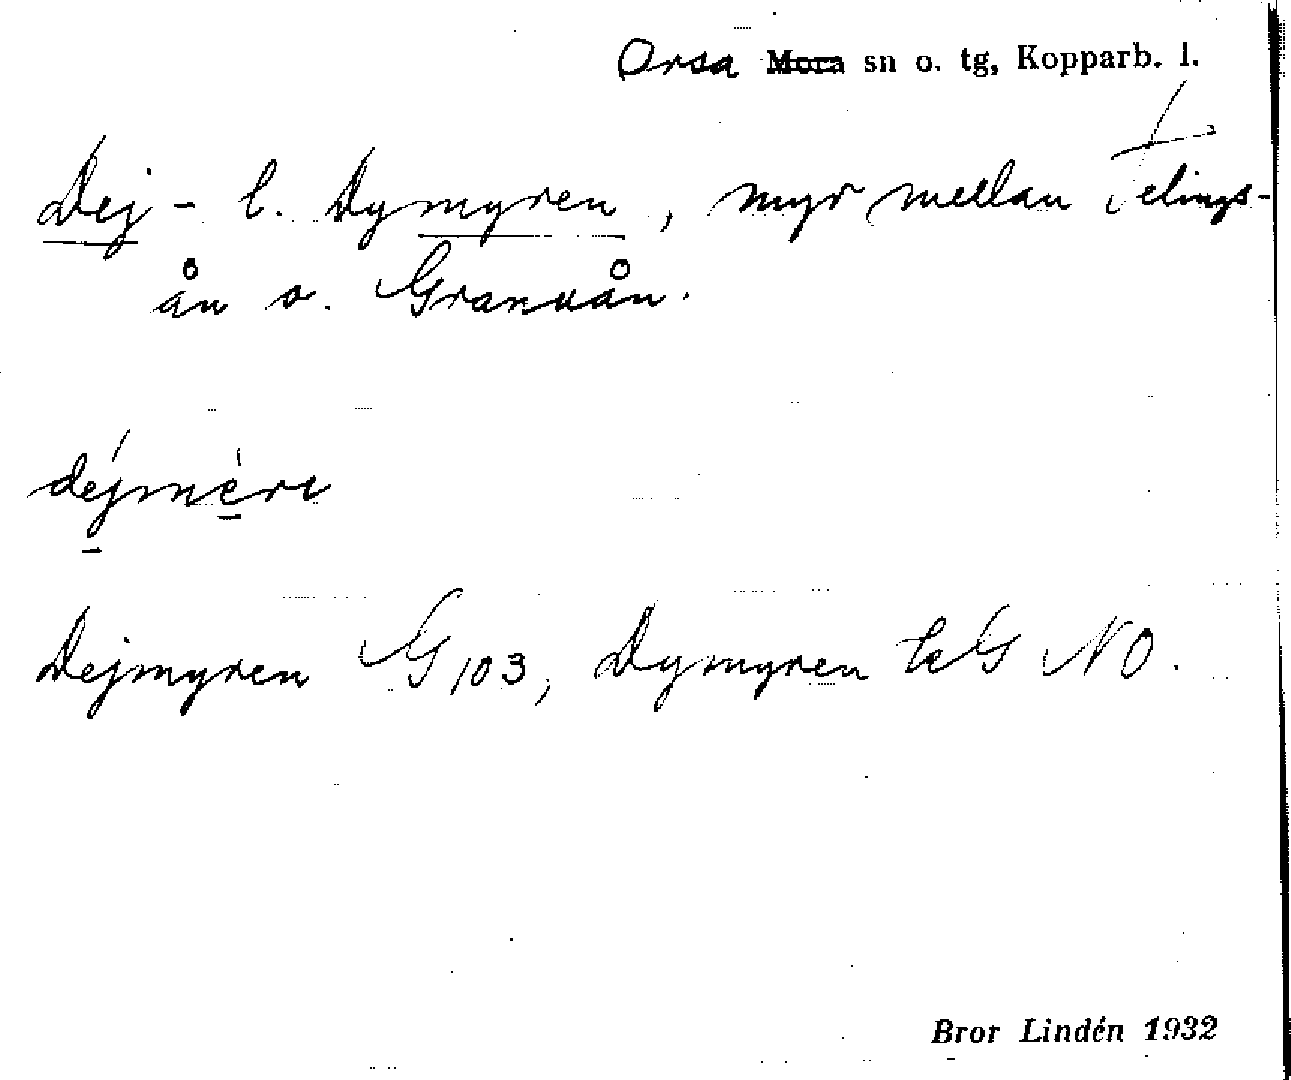 Orsa Mora sn o. tg, Kopparb. l.
Dej- l. Dymyren, myr mellan Telings-
ån o. Granuån.
dejmèrε
Dejmyren G 103, Dymyren tcG NO.
Bror Lindén 1932